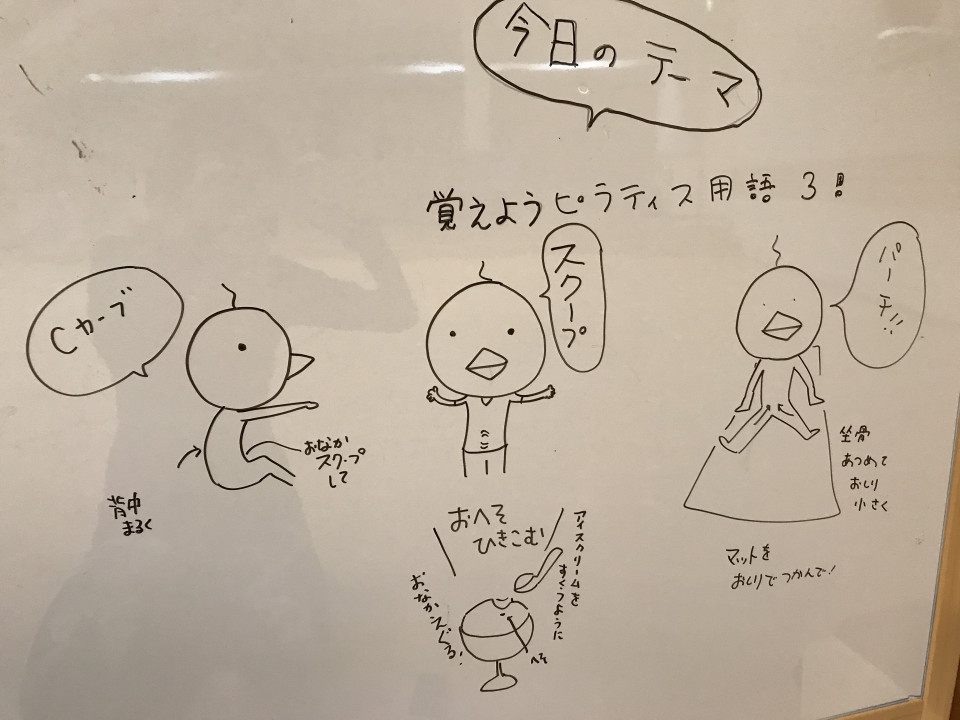 今日のテーマ
覚えようピラティス用語3!
Cカーブ
背中
まるく
おなか
スクープ
して
スクープ
おへそ
ひきこむ
アイスクリームを
すくうように
おなかえぐる!
へそ
パーチ!!
坐骨
あつめて
おしり
小さく
マットを
おしりでつかんで!